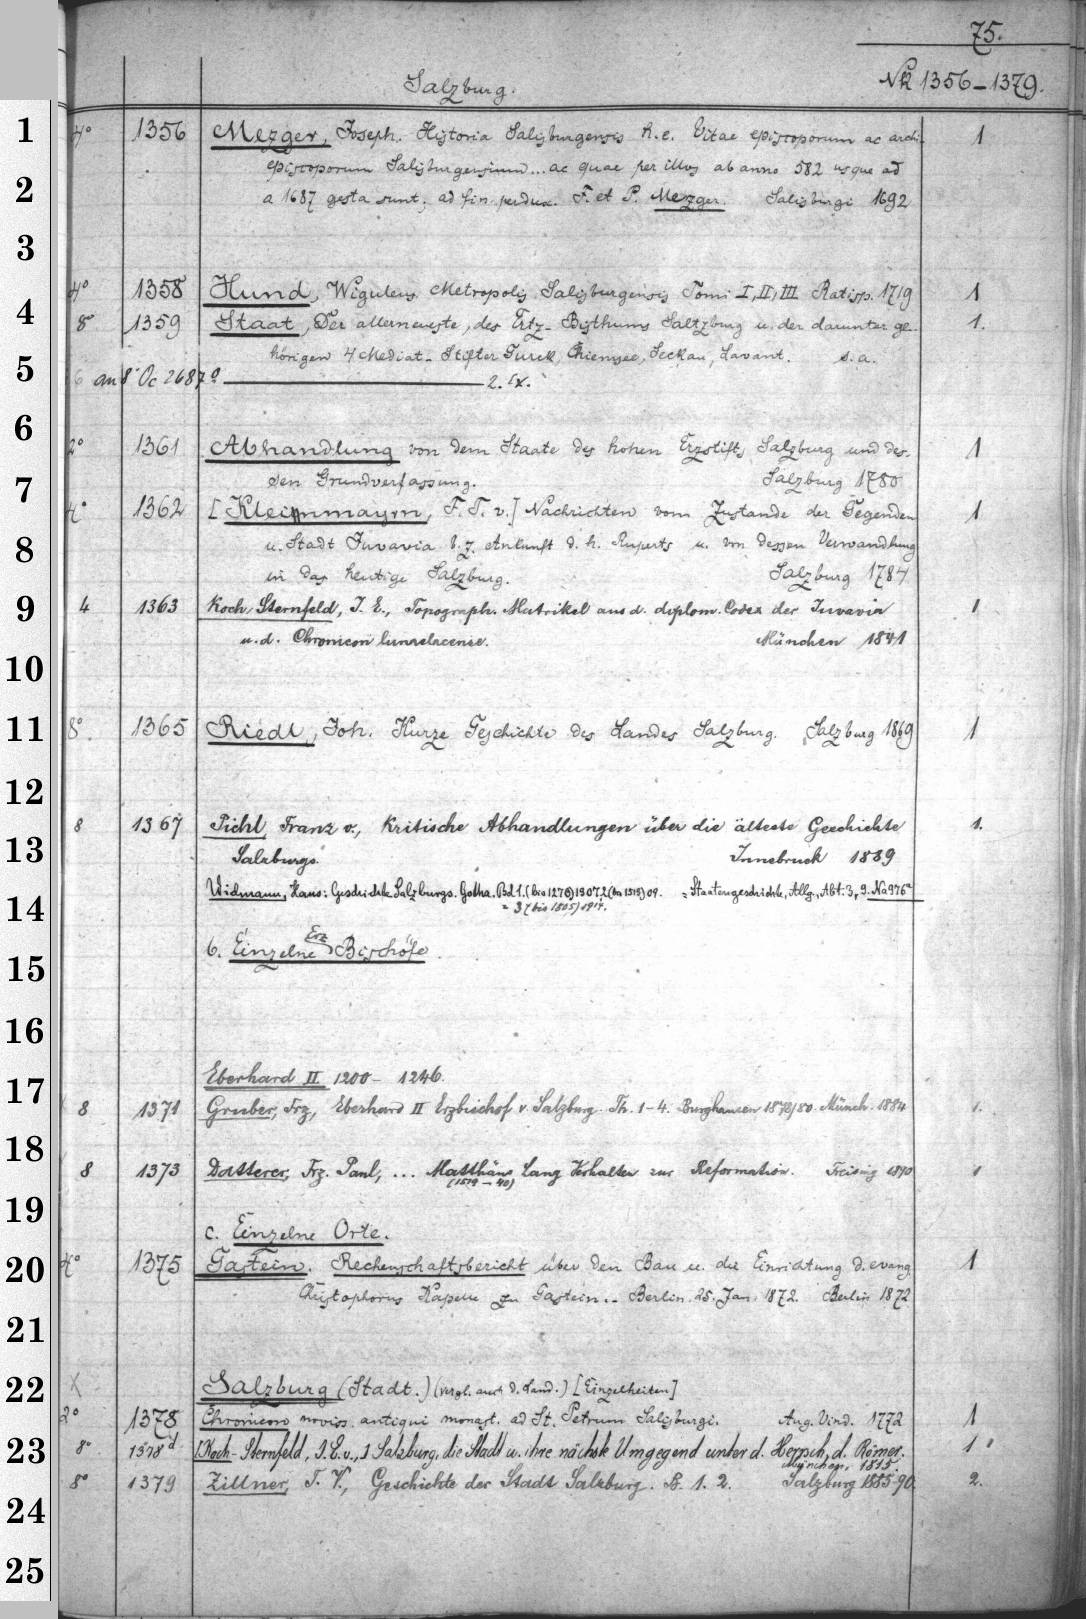 75.
Salzburg. № 1356–1379.
1
4° 1356 Mezger, Joseph. Historia Salisburgensis h. e. Vitae episcoporum ac archi- 1
episcoporum Salisburgensium... ac quae per illos ab anno 582 usque ad
2
a 1687 gesta sunt; ad fin. perdux. F. et P. Mezger. Salisburgi 1692
3
4° 1358 Hund, Wiguleus. Metropolis Salisburgensis Tomi I, II, III Ratisp. 1719 1
4
8° 1359 Staat, Der allerneueste, des Ertz-Bisthums Saltzburg u. der darunter ge- 1.
hörigen 4 Mediat-Stifter Gurck, Chiemsee, Seckau, Lavant. s. a.
5
an 8° Oc 2687 a 2. Ex.
6
2° 1361 Abhandlung von dem Staate des hohen Erzstifts Salzburg und des- 1
7
sen Grundverfassung. Salzburg 1780
4° 1362 [Kleinmayrn, F. T. v.] Nachrichten vom Zustande der Gegenden 1
8
u. Stadt Juvavia b. z. Ankunft d. h. Ruperts u. von dessen Verwandlung
in das heutige Salzburg. Salzburg 1784
9
4 1363 Koch-Sternfeld, J. E., Topograph. Matrikel aus d. diplom. Codex der Juvavia 1
u. d. Chronicon lunaelacense. München 1841
10
11
8°. 1365 Riedl, Joh. Kurze Geschichte des Landes Salzburg. Salzburg 1869 1
12
8 1367 Pichl, Franz v., Kritische Abhandlungen über die älteste Geschichte 1.
13
Salzburgs. Innsbruck 1889
Widmann, Hans: Geschichte Salzburgs. Gotha. Bd 1. (bis 1270) 1907. 2 (bis 1519) 09. = Staatengeschichte, Allg., Abt. 3, 9. Na 976 a
14
= 3 (bis 1805) 1914.
b. Einzelne Erz Bischöfe.
15
16
17
Eberhard II 1200 – 1246.
8 1371 Gruber, Frz, Eberhard II Erzbischof v. Salzburg. Th. 1–4. Burghausen 1878/80. Münch. 1884 1.
18
8 1373 Datterer, Frz. Paul, ... Matthäus Lang Verhalten zur Reformation. Freising 1890 1
(1519 – 40)
19
c. Einzelne Orte.
20
4° 1375 Gastein. Rechenschaftsbericht über den Bau u. die Einrichtung d. evang. 1
Christophorus Kapelle zu Gastein.. Berlin. 25. Jan. 1872. Berlin 1872
21
22
X Salzburg (Stadt.) (vergl. auch d. Land.) [Einzelheiten]
2° 1378 Chronicon noviss. antiqui monast. ad St. Petrum Salisburgi. Aug. Vind. 1772 1
23
8° 1378 d [Koch-Sternfeld, J. E. v.,] Salzburg, die Stadt u. ihre nächste Umgegend unter d. Herrsch. d. Römer. 1
München, 1815.
8° 1379 Zillner, F. V., Geschichte der Stadt Salzburg. B. 1. 2. Salzburg 1885–90. 2.
24
25